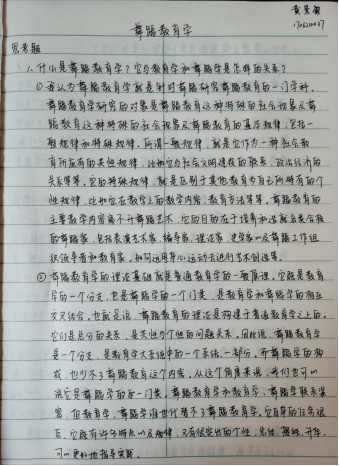 舞蹈教育学
思考题
1.什么是舞蹈教育学?它与教育学和舞蹈学是怎样的关系?
①我认为舞蹈教育学就是针对研究舞蹈教育的一门学科,
舞蹈教育学研究的对象是舞蹈教育这种特殊的社会现象及舞
蹈教育这种特殊的社会现象及舞蹈教育的基本规律,包括一
般规律和特殊规律,所谓一般规律,就是它作为一种社会教
育所应有的共性规律,比如它与社会文明进程的联系,政治经济的
关系等等,它的特殊规律,就是区别于其他教育为自己所特有的个
性规律,比如它在教学上的教学内容、教育方法等等。舞蹈教育的
主要教学内容离不开舞蹈艺术,它的目的在于培养和造就各类合格
的舞蹈家,包括表演艺术家、编导家、理论家、史学家以及舞蹈工作组
织领导者和教育家,如何运用身心运动去进行艺术创造等。
②舞蹈教育学的理论基础就是普通教育学的一般原理。它既是教育
学的一个分支,也是舞蹈学的一个门类,是教育学和舞蹈学的相互
交叉结合,也就是说,舞蹈教育的理论是构建于普通教育学之上的。
它们是总分的关系,是共性与个性的问题关系。因此说,舞蹈教育学
是一个分支,是教育学大系统中的一个系统、一部分,而舞蹈学的构
成也少不了舞蹈教育这个内容。从这个角度来说,我们也可以
说它是舞蹈学的另一门类。舞蹈教育学和教育学、舞蹈学联系紧
密,但教育学、舞蹈学谁也代替不了舞蹈教育学。它自有的任务说
它既有许多特点以及规律,又有很突出的个性,总结、
可以更好地指导实践。